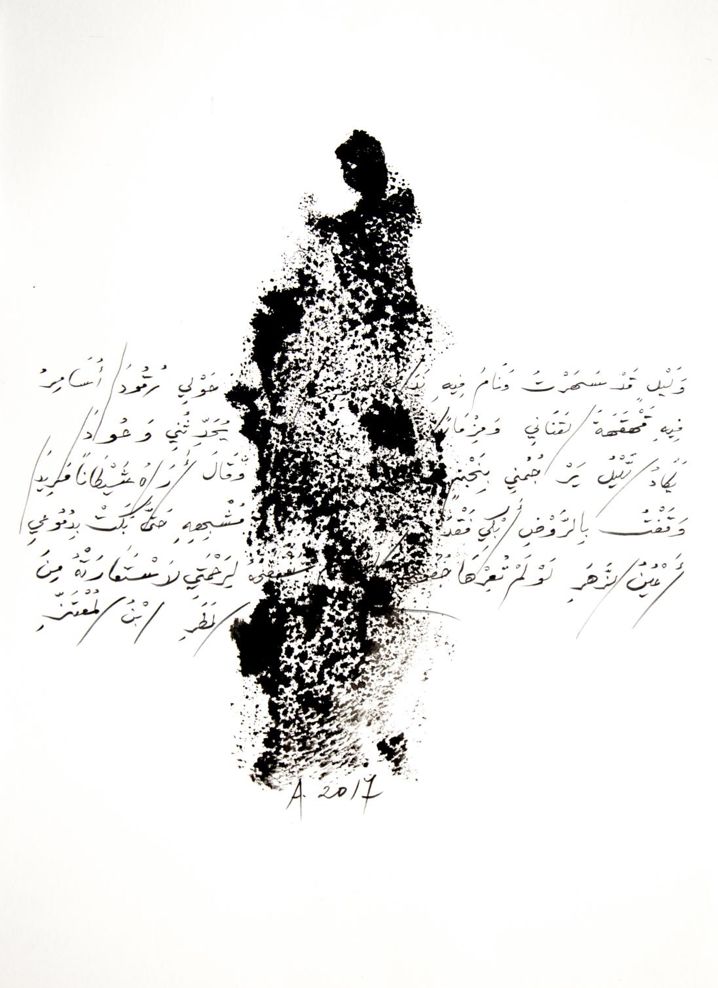 وَلَيْلٍ قَدْ سَهِرْتُ وَنَامَ فِيهِ حَوْلِي رُقُودَا أُسَامِرُ
فِيهِ قَهْقَهَةَ القَنَانِي وَمِزْمَارًا يُحَدِّثُنِي وَعُودَا
يَكَادُ اللَّيْلُ يَرْجُمُنِي بِنَجْمٍ وَقَالَ أَرَاهُ شَيْطَانًا مَرِيدَا
وَقَفْتُ بِالرَّوْضِ أَبْكِي فَقْدَ مُشْبِهِهِ حَتَّى بَكَتْ بِدُمُوعِي
أَعْيُنُ الزَّهَرِ لَوْ لَمْ تُعِرْهَا جُفُونِي لِرَحْمَتِي لَاسْتَعَارَتْهُ مِنَ
المَطَرِ ابْنُ المُعْتَزِّ
A. 2017